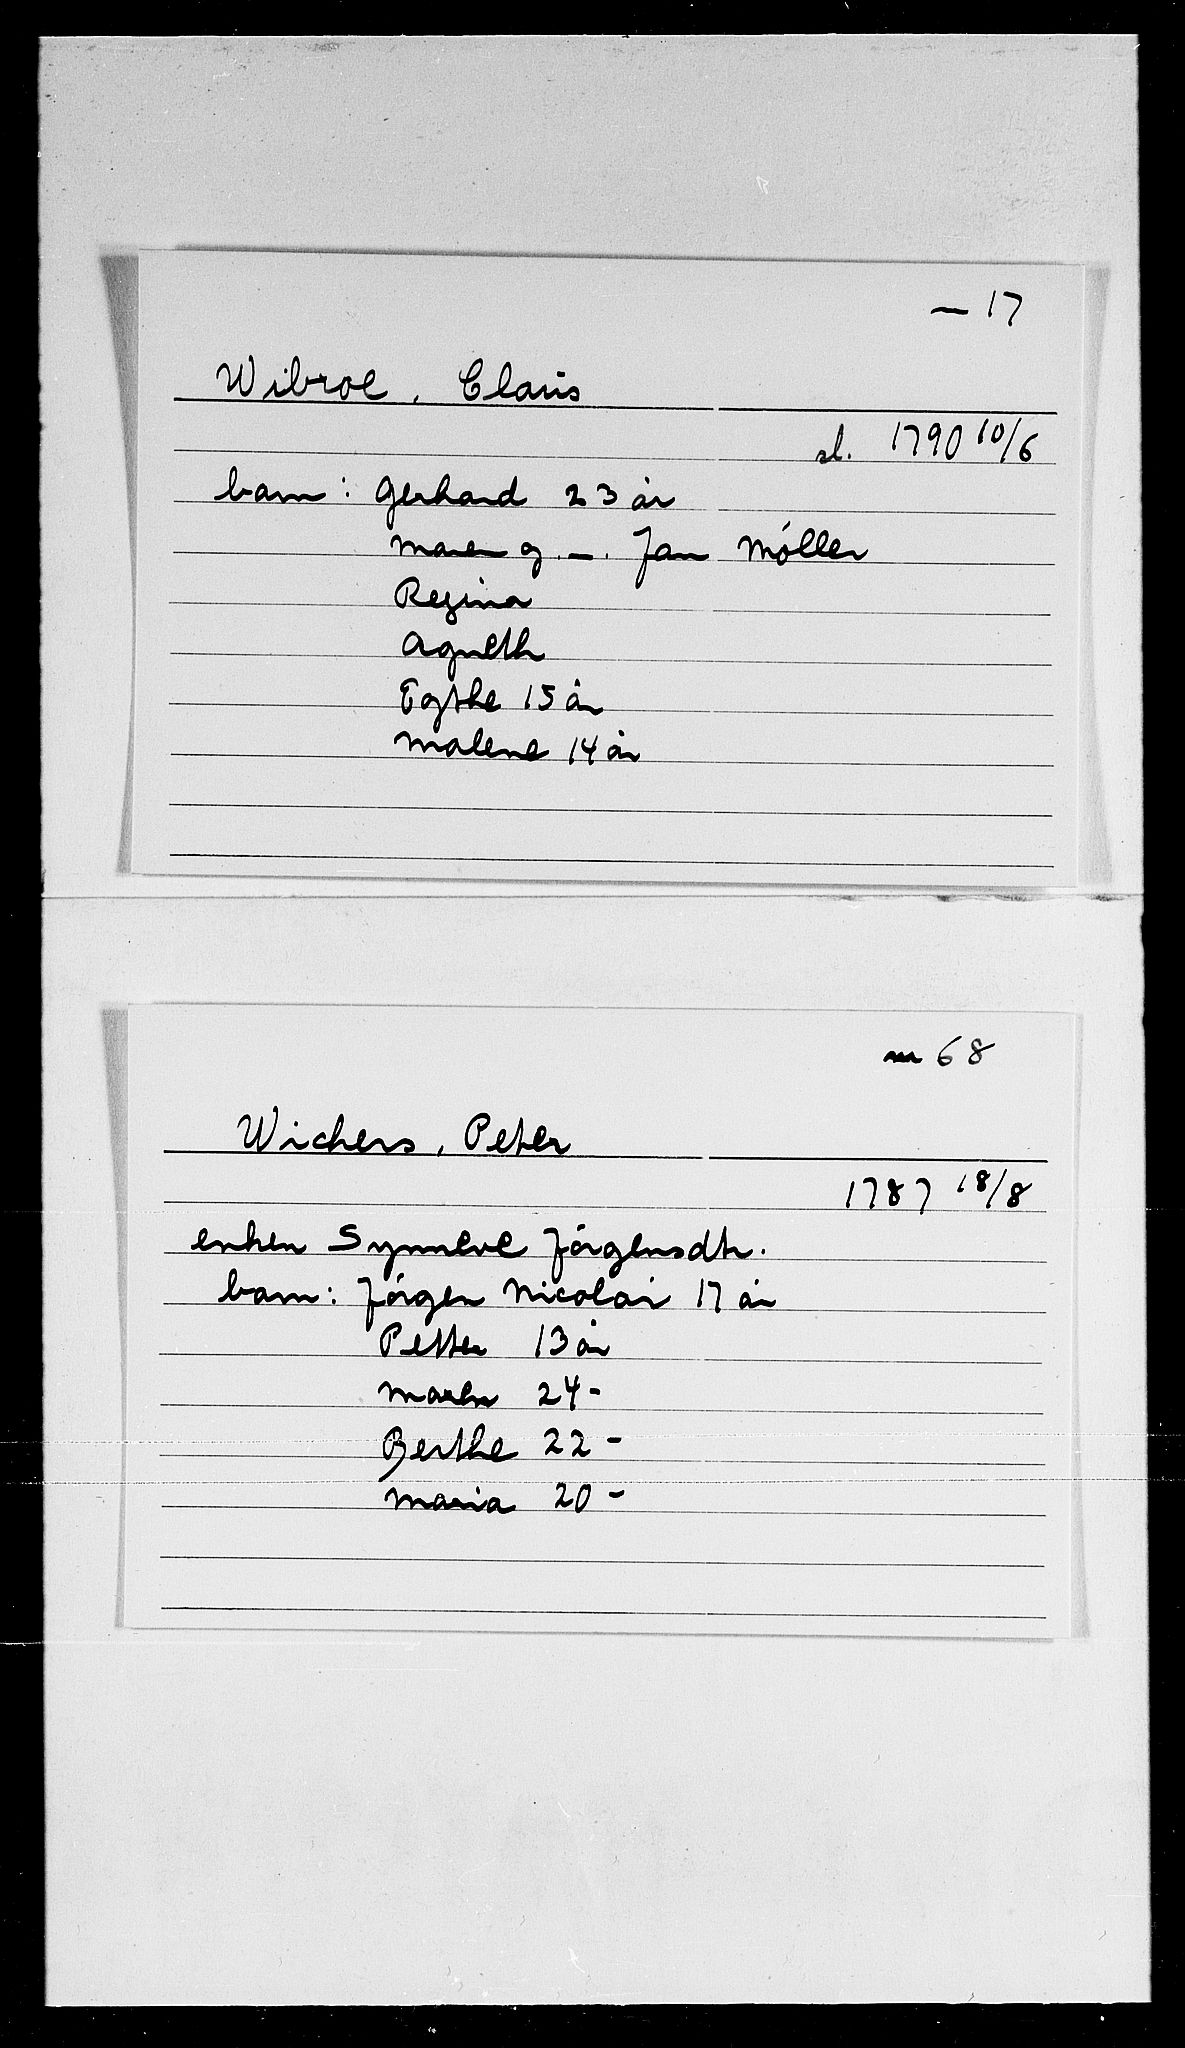 — 17
Wibroe, Claus
sl. 1790 10/6
barn: Gerhard 23 år
Maren g. m. Jan Møller
Regina
Agneth
Egthe 15 år
Malene 14 år
m 68
Wichers, Peter
1787 18/8
enken Synneve Jörgensdtr.
barn: Jörgen Nicolai 17 år
Petter 13 år
Maren 24 -
Berthe 22 -
Maria 20 -